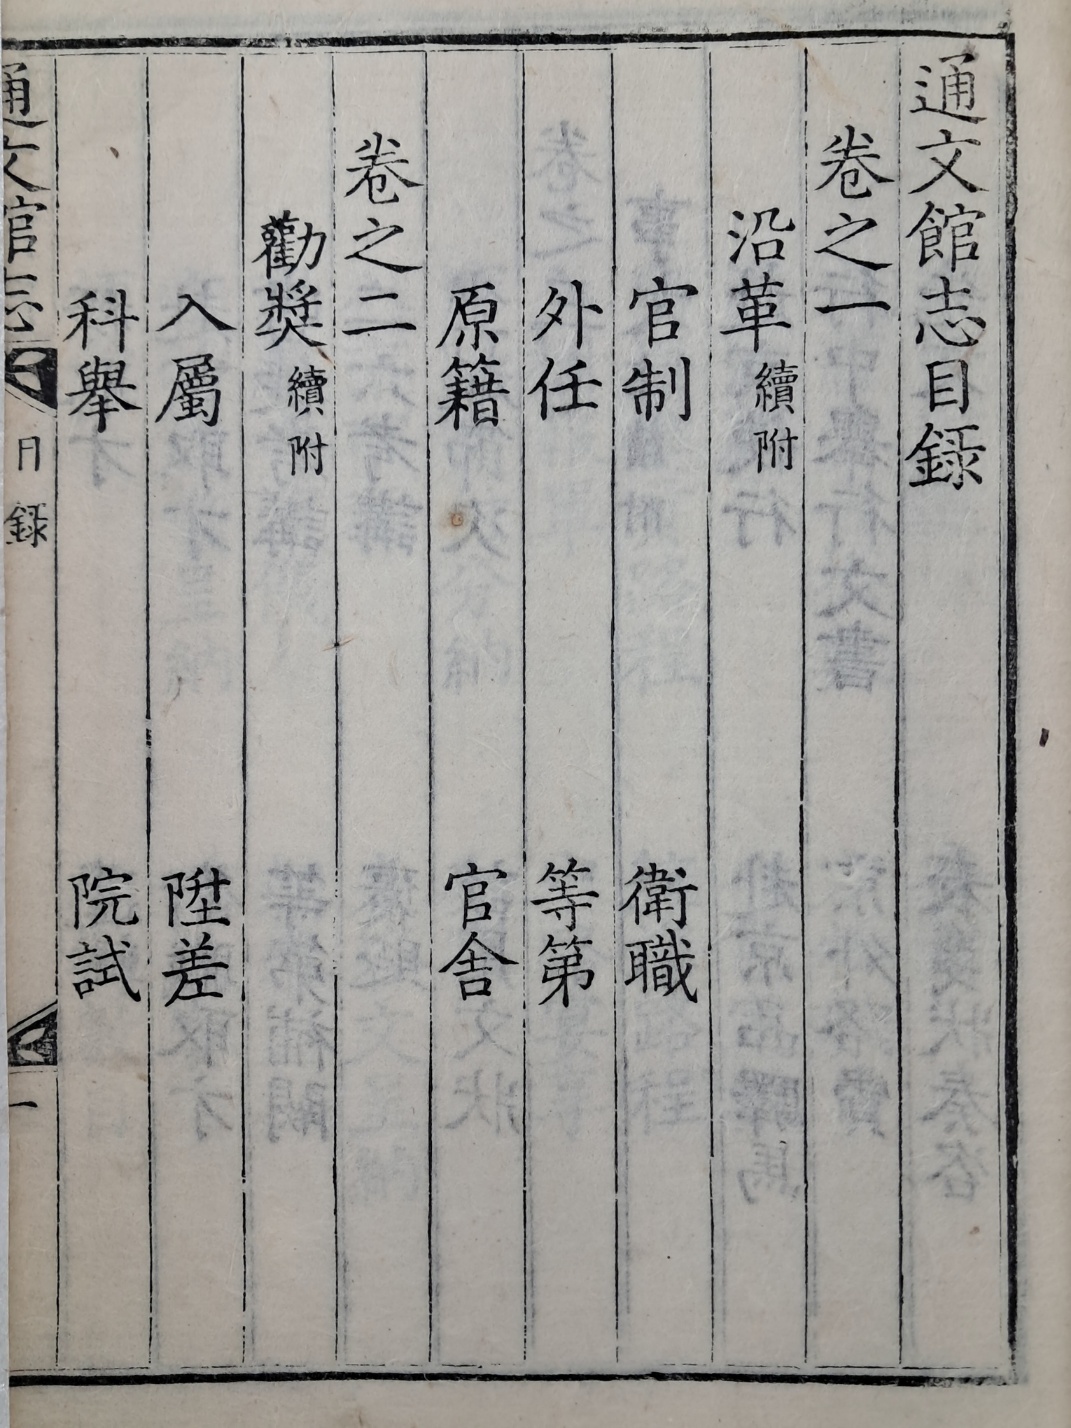 通文館志目錄
卷之一
沿革 續附
官制 衛職
外任 等第
原籍 官舍
卷之二
勸奬 續附
入屬 陞差
科擧 院試
通文館志 目錄 一